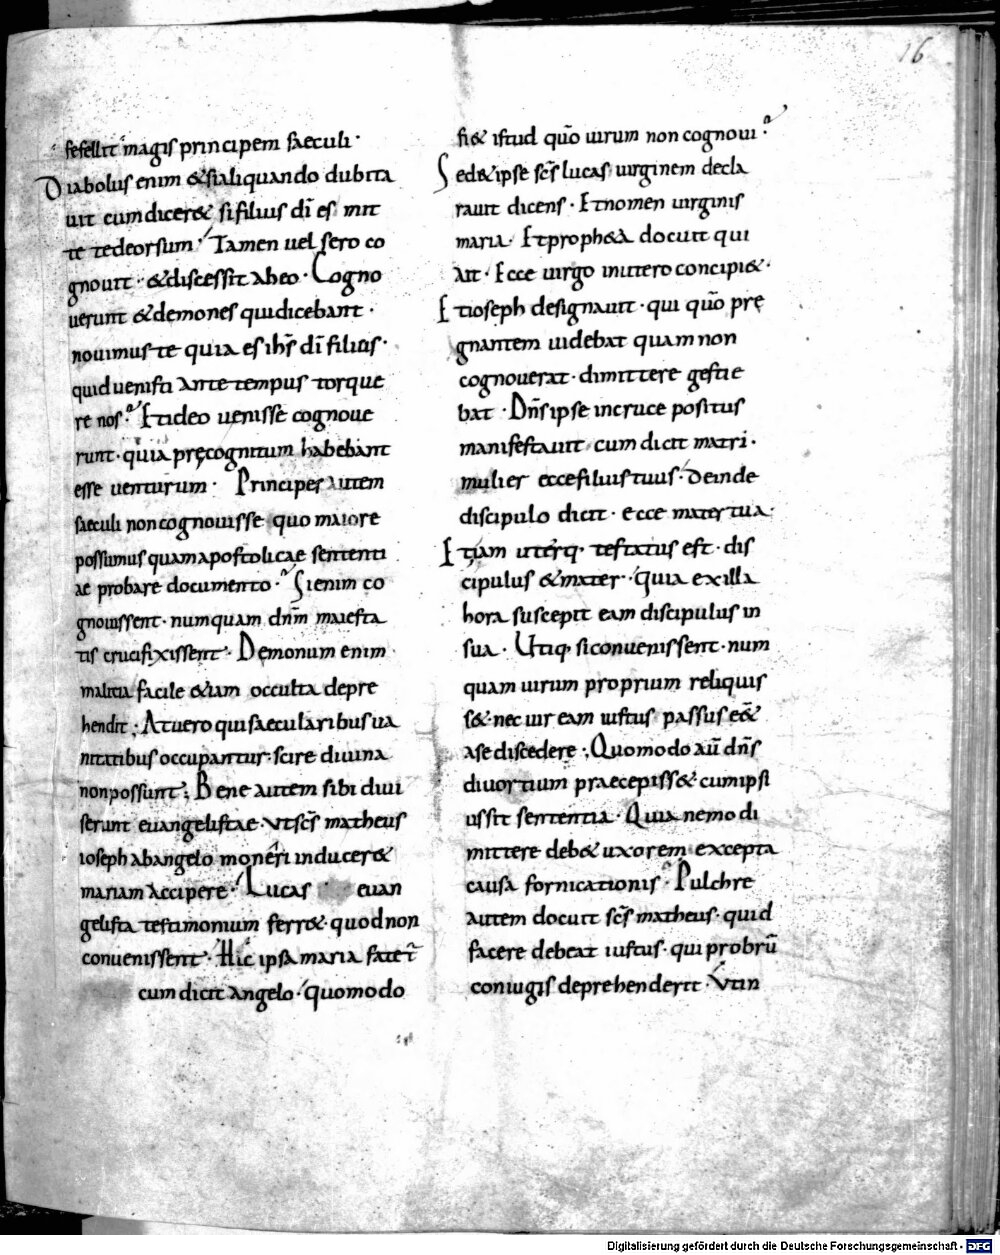 16
fefellit magis principem saeculi·
Diabolus enim &si aliquando dubita
uit cum dicer& si filius dī es mit
te te deorsum· Tamen uel sero co
gnouit· & discessit ab eo· Cogno
uerunt & demones qui dicebant·
nouimus te quia es ihs̄ dī filius·
quid uenisti ante tempus torque
re nos? Et ideo uenisse cognoue
runt· quia pręcognitum habebant
esse uenturum· Principes autem
saeculi non cognouisse quo maiore
possumus quam apostolicae sententi
ae probare documento· Si enim co
gnouissent· numquam dnm̄ maiesta
tis crucifixissent· Demonum enim
malitia facile &iam occulta depre
hendit; At uero qui saecularibus ua
nitatibus occupantur· scire diuina
non possunt; Bene autem sibi diui
serunt euangelistae· ut scs̄ matheus
ioseph ab angelo moneri inducer&
mariam accipere· Lucas euan
gelista testimonium ferr&· quod non
conuenissent· Hic ipsa maria fatet̄
cum dicit angelo· quomodo
fi& istud quō uirum non cognoui?
Sed & ipse scs̄ lucas uirginem decla
rauit dicens· Et nomen uirginis
maria· Et proph&a docuit qui
ait· Ecce uirgo in utero concipi&·
Et ioseph designauit· qui quō prę
gnantem uidebat quam non
cognouerat· dimittere gestie
bat· Dns̄ ipse in cruce positus
manifestauit cum dicit matri·
mulier ecce filius tuus· Deinde
discipulo dicit· ecce mater tua·
Etiam uterq· testatus est· dis
cipulus & mater· quia ex illa
hora suscepit eam discipulus in
sua· Utiq· si conuenissent· num
quam uirum proprium reliquis
s&· nec uir eam iustus passus e&
a se discedere; Quomodo aū dns̄
diuortium praecepiss& cum ipsi
us sit sententia· Quia nemo di
mittere deb& uxorem excepta
causa fornicationis· Pulchre
autem docuit scs̄ matheus· quid
facere debeat iustus· qui probrū
coniugis deprehenderit· Ut in
Digitalisierung gefördert durch die Deutsche Forschungsgemeinschaft - DFG